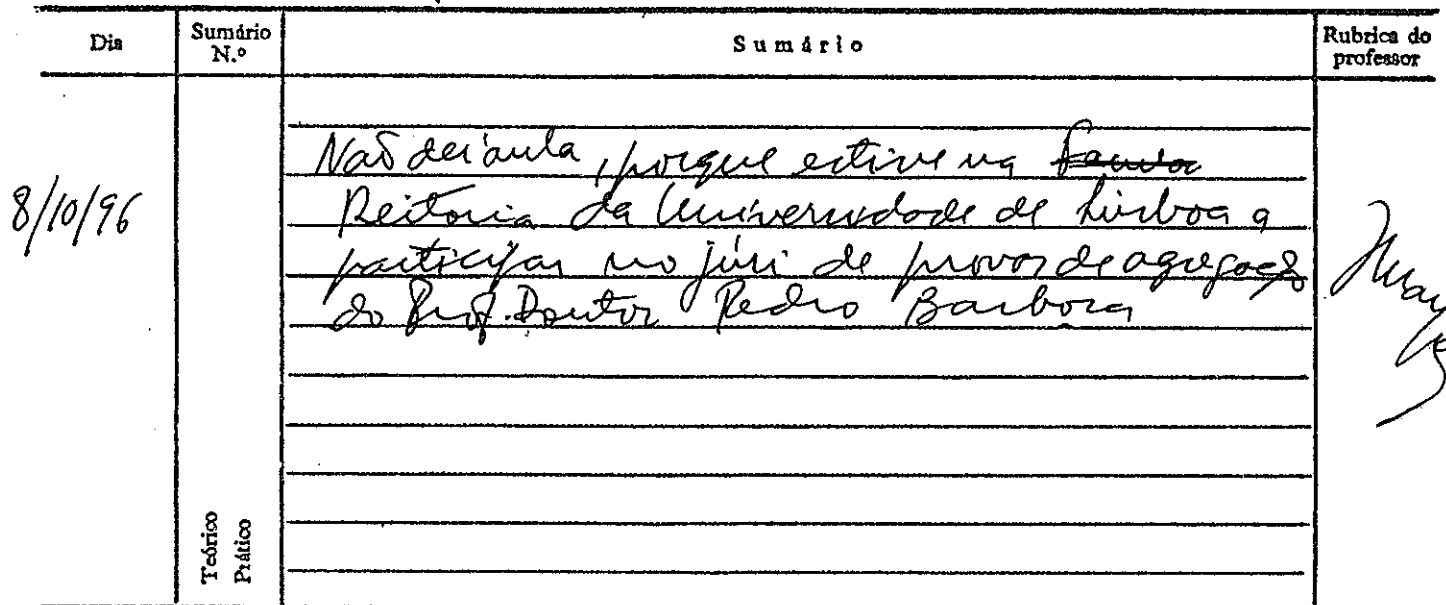 Dia
Sumário N.º
Sumário
Rubrica do professor
8/10/96
Não dei aula, porque estive na
Reitoria da Universidade de Lisboa a
participar no júri de provas de agregação
do Prof. Doutor Pedro Barbosa
Teórico
Prático